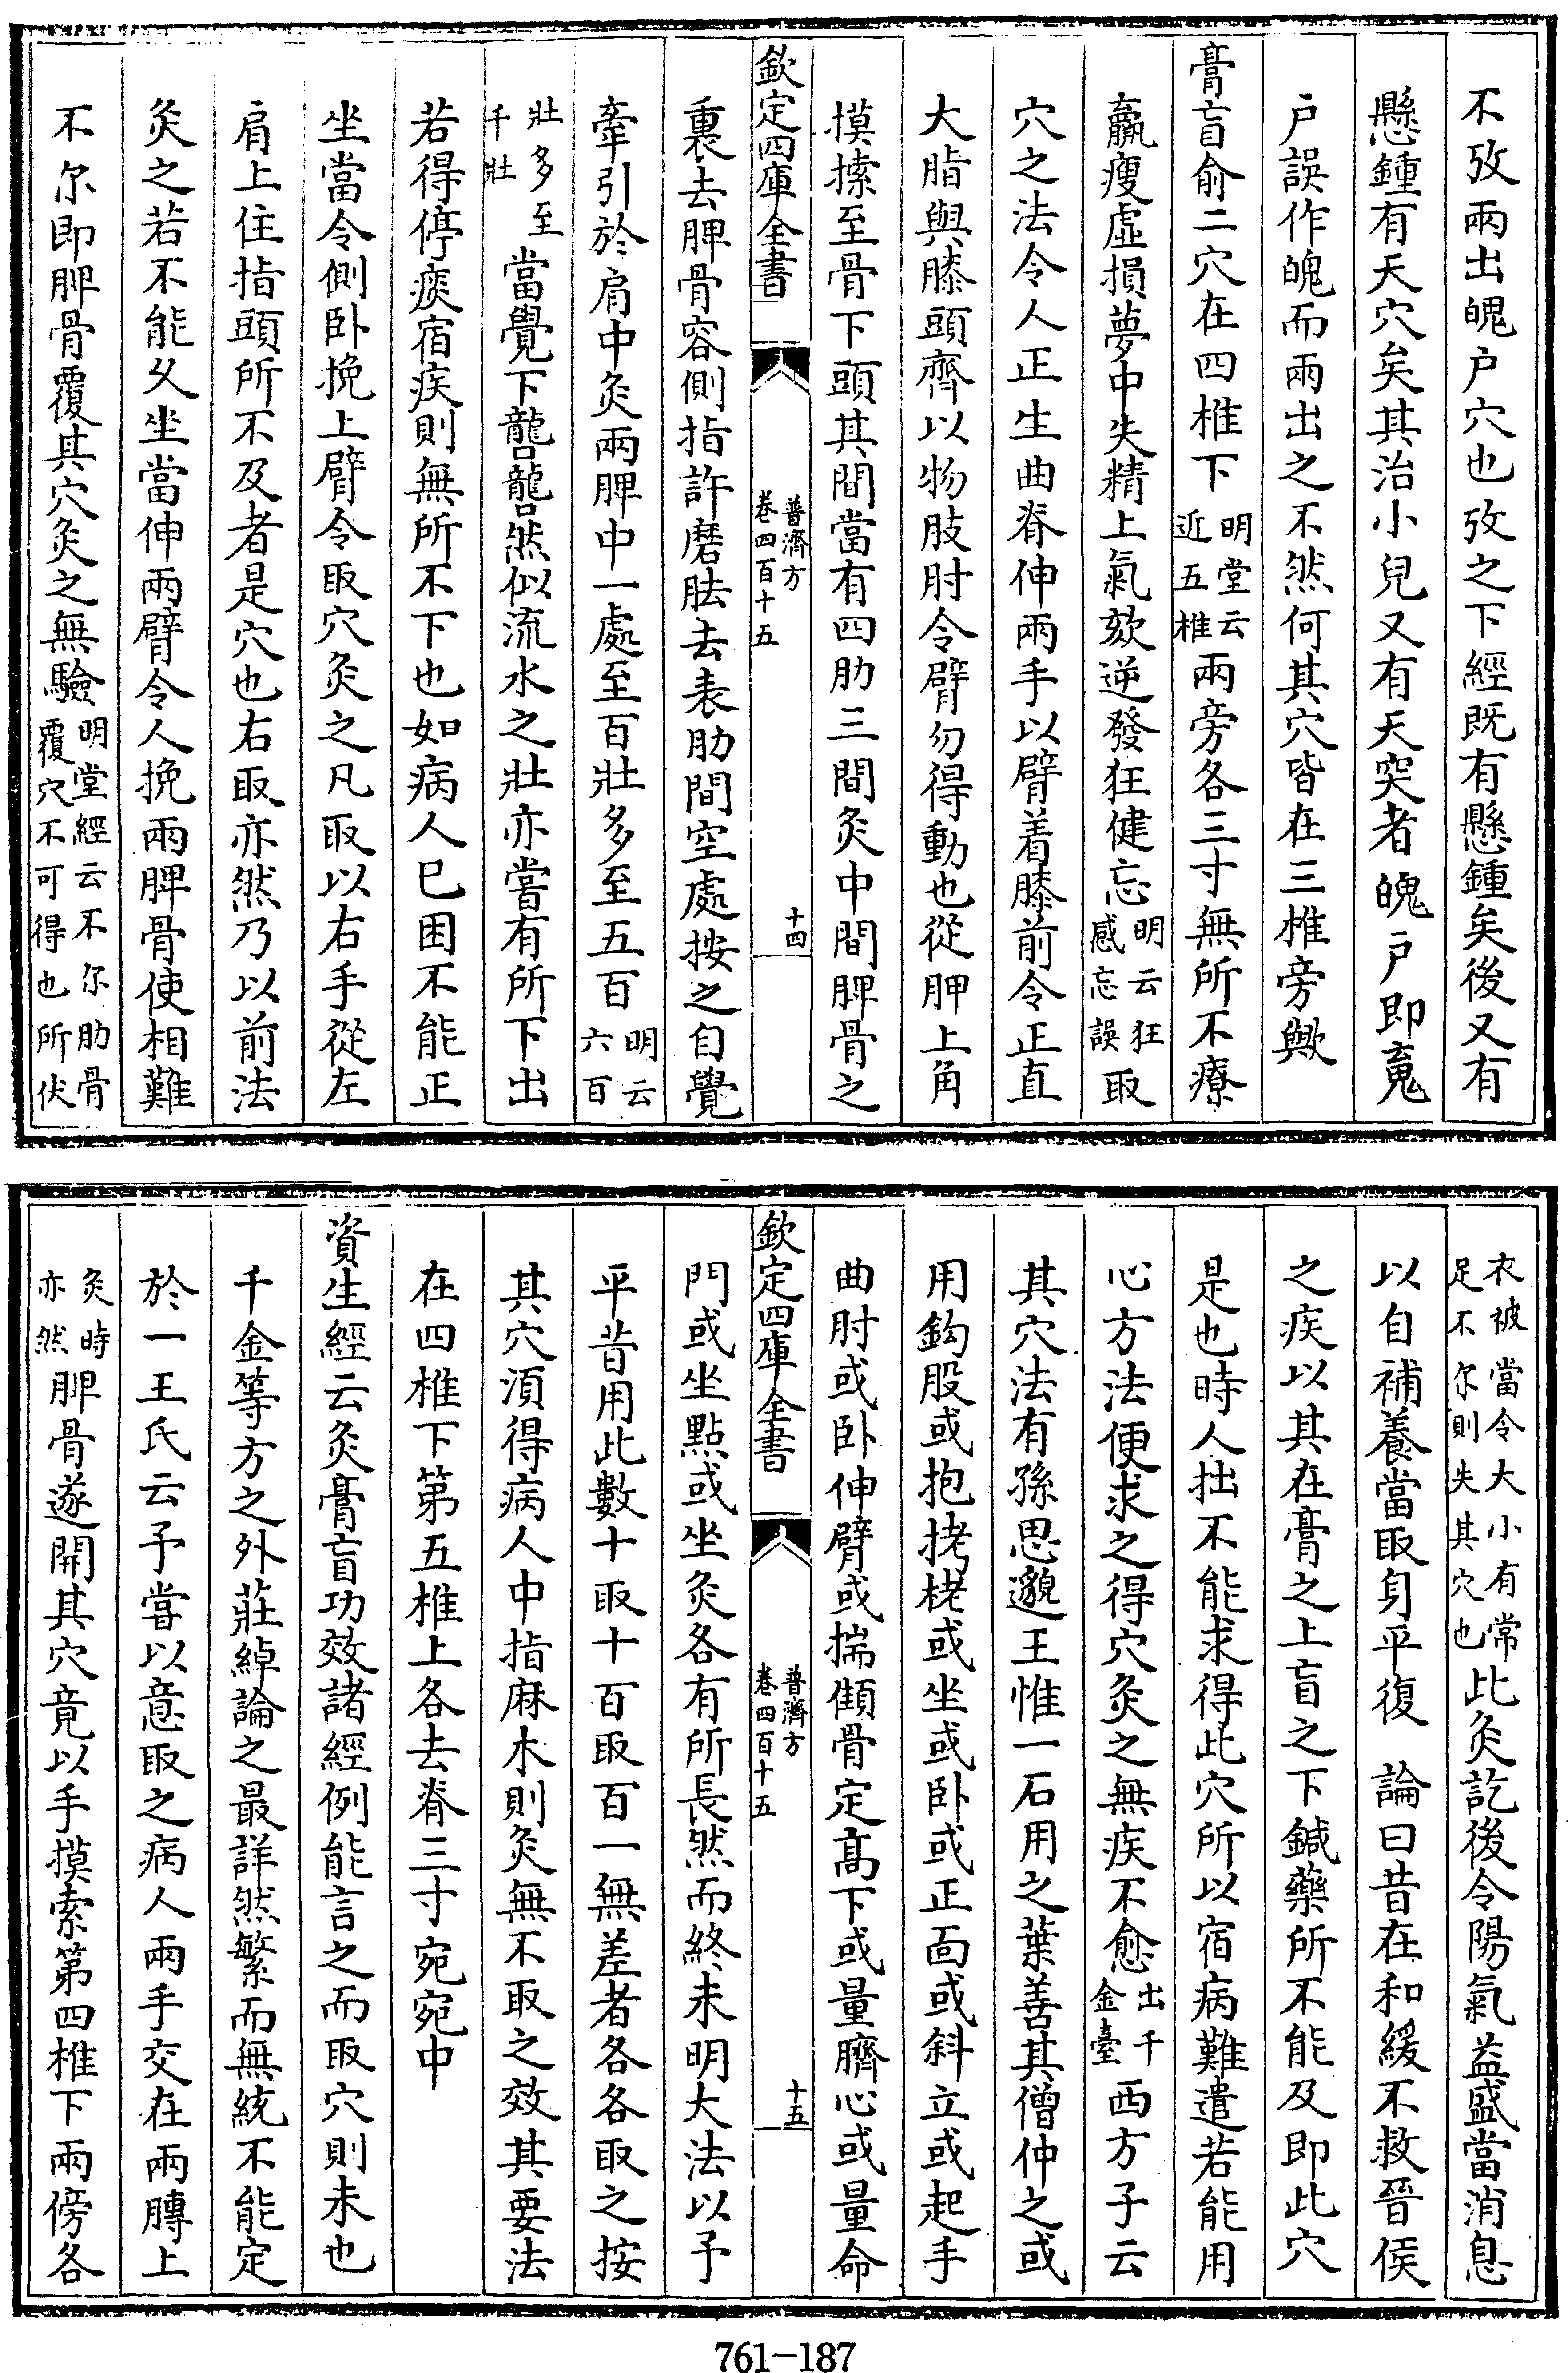 不攷兩出魄户穴也攷之下經既有懸鍾矣後又有
懸鍾有天穴矣其治小兒又有天突者魄户即䰟
户誤作魄而兩出之不然何其穴皆在三椎旁歟
膏盲俞二穴在四椎下明堂云近五椎兩旁各三寸無所不療
羸瘦虛損夢中失精上氣欬逆發狂健忘明云狂惑忘誤取
穴之法令人正生曲脊伸兩手以臂着膝前令正直
大脂與膝頭齊以物肢肘令臂勿得動也從胛上角
摸揉至骨下頭其間當有四肋三間灸中間脾骨之
欽定四庫全書
普濟方
卷四百十五
十四
裏去脾骨容側指許磨胠去表肋間空處按之自覺
牽引於肩中灸兩脾中一處至百壯多至五百明云六百
壯多至千壯當覺下礱礱然似流水之壯亦嘗有所下出
若得停痰宿疾則無所不下也如病人已困不能正
坐當令側卧挽上臂令取穴灸之凡取以右手從左
肩上住指頭所不及者是穴也右取亦然乃以前法
灸之若不能久坐當伸兩臂令人挽兩脾骨使相難
不尔即脾骨覆其穴灸之無驗明堂經云不尔肋骨覆穴不可得也所伏
衣被當令大小有常足不尔則失其穴也此灸訖後令陽氣益盛當消息
以自補養當取身平復 論曰昔在和緩不救晉侯
之疾以其在膏之上盲之下鍼藥所不能及即此穴
是也時人拙不能求得此穴所以宿病難遣若能用
心方法便求之得穴灸之無疾不愈出千金臺西方子云
其穴法有孫思邈王惟一石用之葉善其僧仲之或
用鈎股或抱拷栳或坐或卧或正面或斜立或起手
曲肘或卧伸臂或揣傾骨定高下或量臍心或量命
欽定四庫全書
普濟方
卷四百十五
十五
門或坐點或坐灸各有所長然而終未明大法以予
平昔用此數十取十百取百一無差者各各取之按
其穴湏得病人中指麻木則灸無不取之效其要法
在四椎下第五椎上各去脊三寸宛宛中
資生經云灸膏盲功效諸經例能言之而取穴則未也
千金等方之外莊綽論之最詳然繁而無統不能定
於一王氏云予嘗以意取之病人兩手交在兩膞上
灸時亦然脾骨遂開其穴竟以手摸索第四椎下兩傍各
761-187